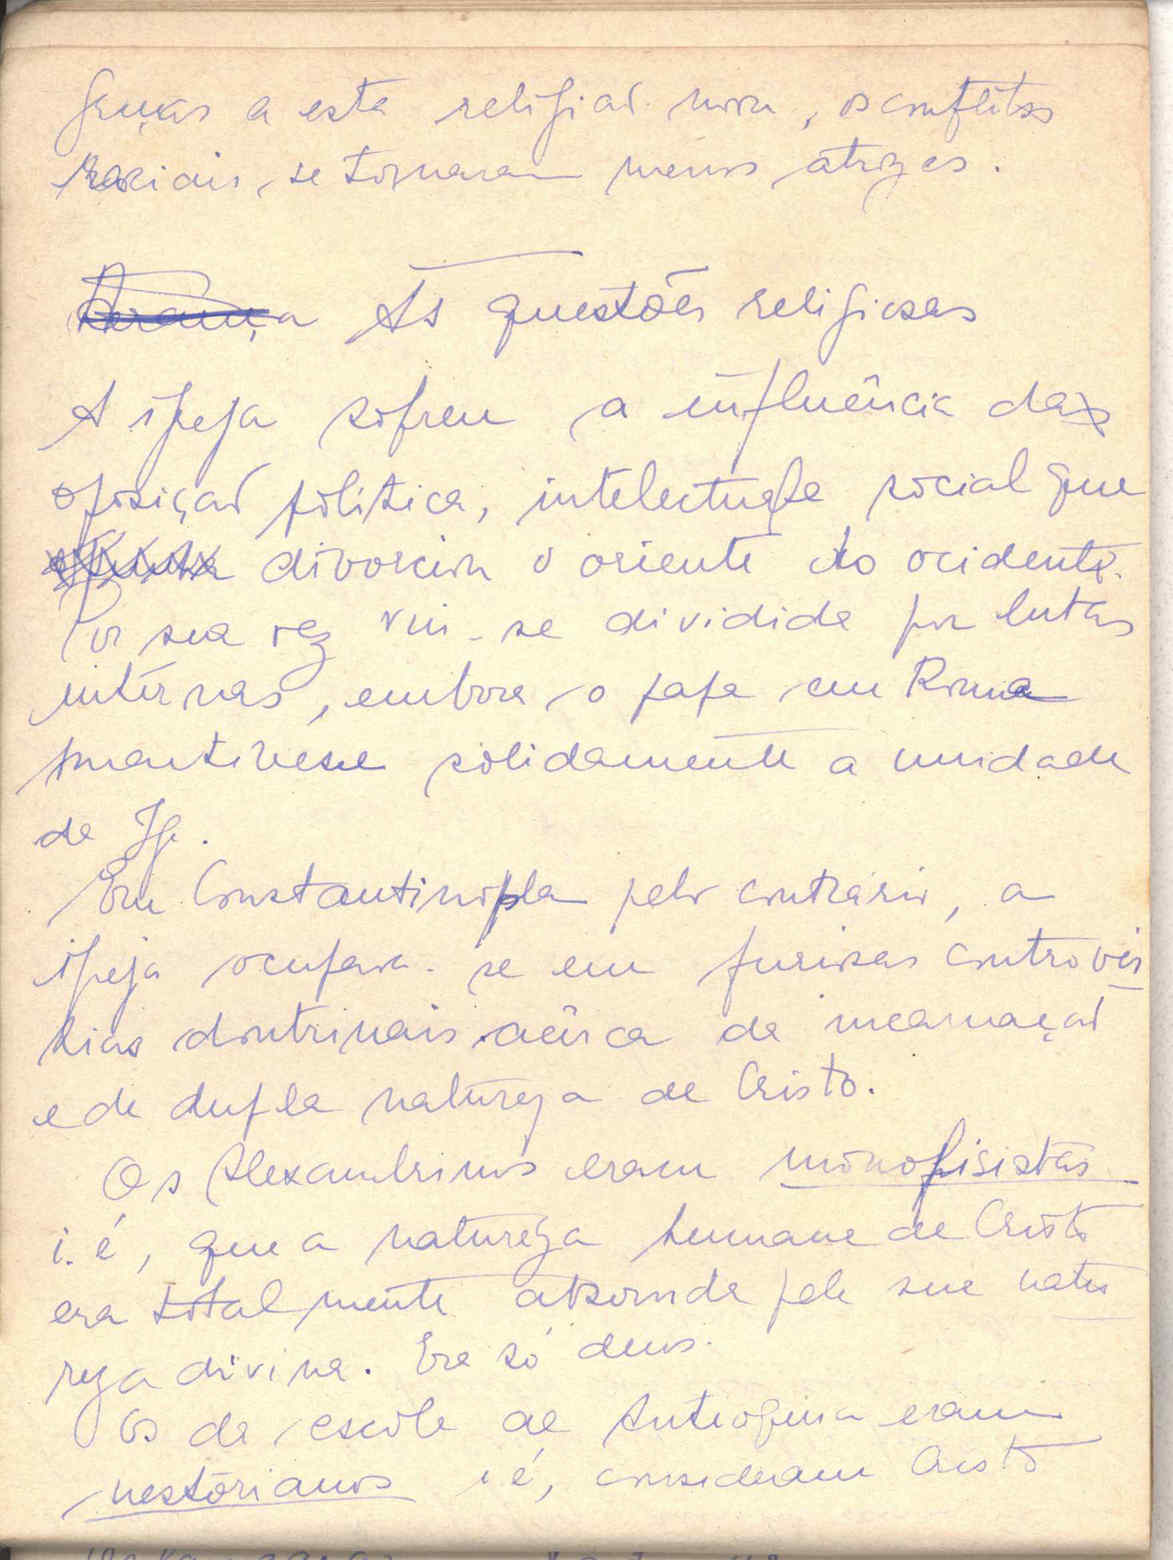 Graças a esta religião nova, os conflitos
raciais, se tornaram menos atrozes.
As questões religiosas
A igreja sofreu a influência da
oposição política, intelectual e social que
divorciou o oriente do ocidente.
Por sua vez viu-se dividida por lutas
internas, embora o papa em Roma
mantivesse solidamente a unidade
da Ig.
Em Constantinopla pelo contrário, a
igreja ocupava-se em furiosas controvér
sias doutrinais acêrca da incarnação
e da dupla natureza de Cristo.
Os Alexandrinos eram monofisistas
i. é, que a natureza humana de Cristo
era totalmente absorvida pela sua natu
reza divina. Era só deus.
Os da escola de Antioquia eram
nestorianos i é, consideram Cristo